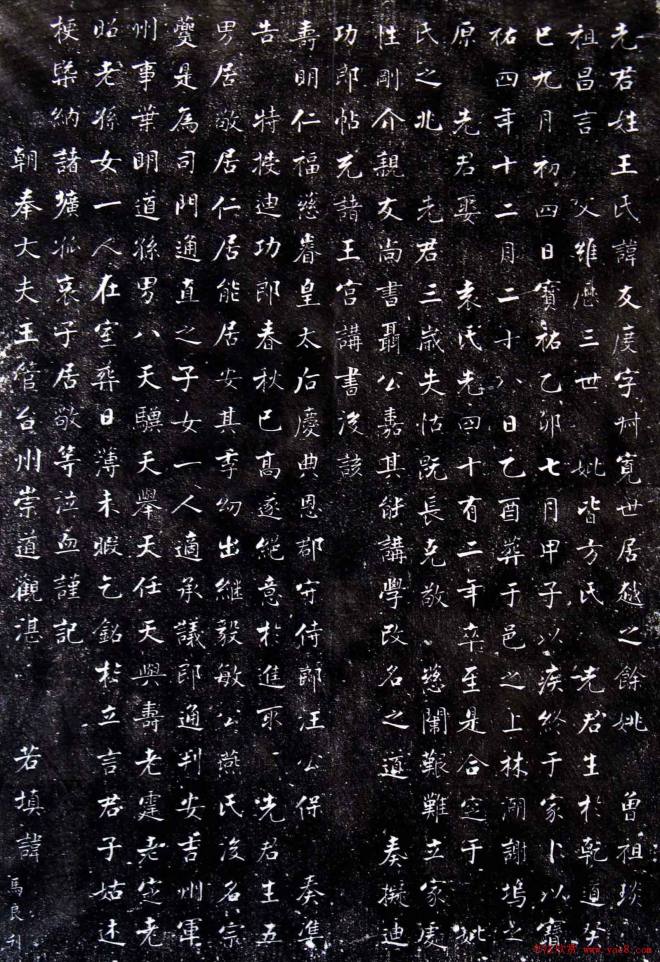 先君姓王氏諱友度字叔寬世居越之餘姚 曾祖琰
祖昌言 父維歷三世 妣皆方氏 先君生於乾道癸
巳九月初四日寳祐乙卯七月甲子以疾終于家卜以寳
祐四年十二月二十八日乙酉葬于邑之上林湖謝塢之
原 先君娶 袁氏先四十有二年卒至是合窆于 妣
氏之兆 先君三歲失怙既長克敬 慈闈艱難立家處
性剛介親友尚書聶公嘉其能講學改名之道 奏擬迪
功郎帖充諸王宫講書後該
壽明仁福慈睿皇太后慶典恩郡守侍郎汪公保 奏準
告 特授迪功郎春秋已高遂絕意於進取 先君生五
男居敬居仁居能居安其季幼出繼毅敏公燕氏後名宗
夔是為司門通直之子女一人適承議郎通判安吉州軍
州事葉明道孫男八天驥天舉天任天與壽老霆老定老
昭老孫女一人在室葬日薄未暇乞銘於立言君子姑述
梗槩納諸壙孤哀子居敬等泣血謹記
朝奉大夫王管台州崇道觀湛 若填諱
馬良刊
书法欣赏 www.yac8.com